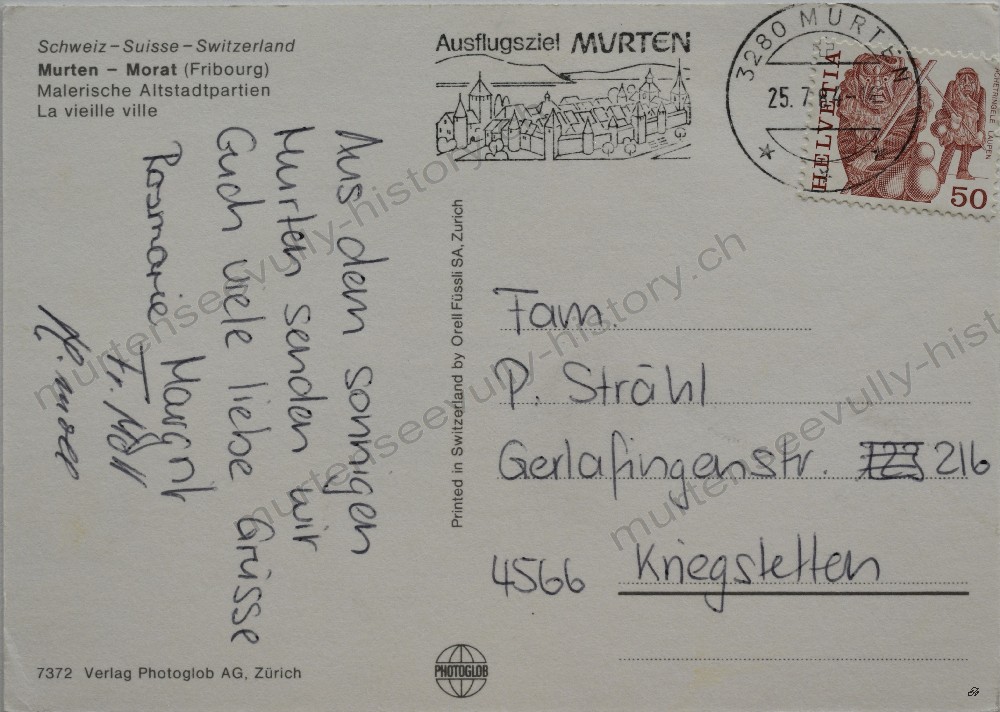 Schweiz – Suisse – Switzerland
Murten – Morat (Fribourg)
Malerische Altstadtpartien
La vieille ville
Aus dem sonnigen
Murten senden wir
Euch viele liebe Grüsse
Rosmarie Margrit
Ausflugsziel MURTEN
3280 MURTEN
25. 7
HELVETIA
LAUPEN
50
Printed in Switzerland by Orell Füssli SA, Zurich
Fam.
P. Strähl
Gerlafingenstr. 216
4566 Kriegstetten
7372 Verlag Photoglob AG, Zürich
PHOTOGLOB
murtenseevully-history.ch
murtenseevully-history.ch
murtenseevully-history